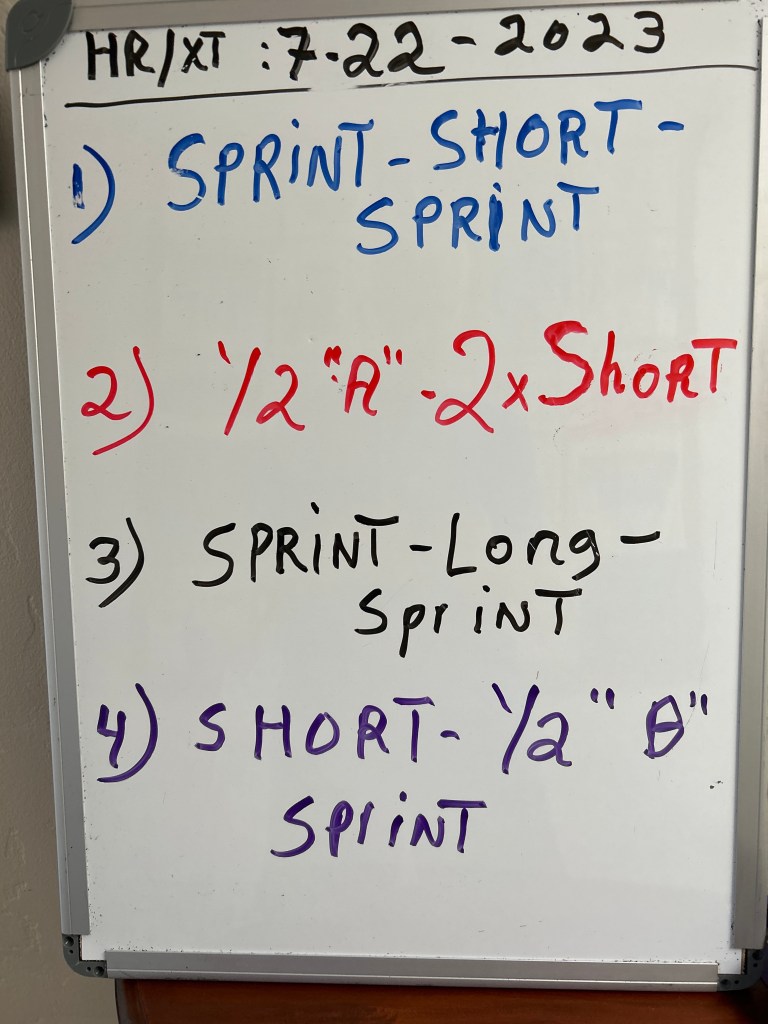 HR/XT : 7-22-2023
1) SPRINT - SHORT -
SPRINT
2) 1/2 "A" - 2x ShORT
3) SPRINT - Long -
SprINT
4) SHORT - 1/2 "B"
SprINT